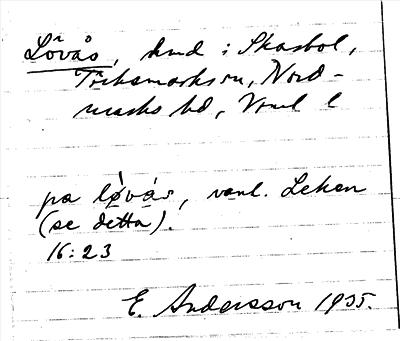 Lövås, hmd i Skasbol,
Töcksmarks sn, Nord-
marks hd, Vrml l
på lø̀vás, vanl. Leken
(se detta).
16:23
E. Andersson 1935.